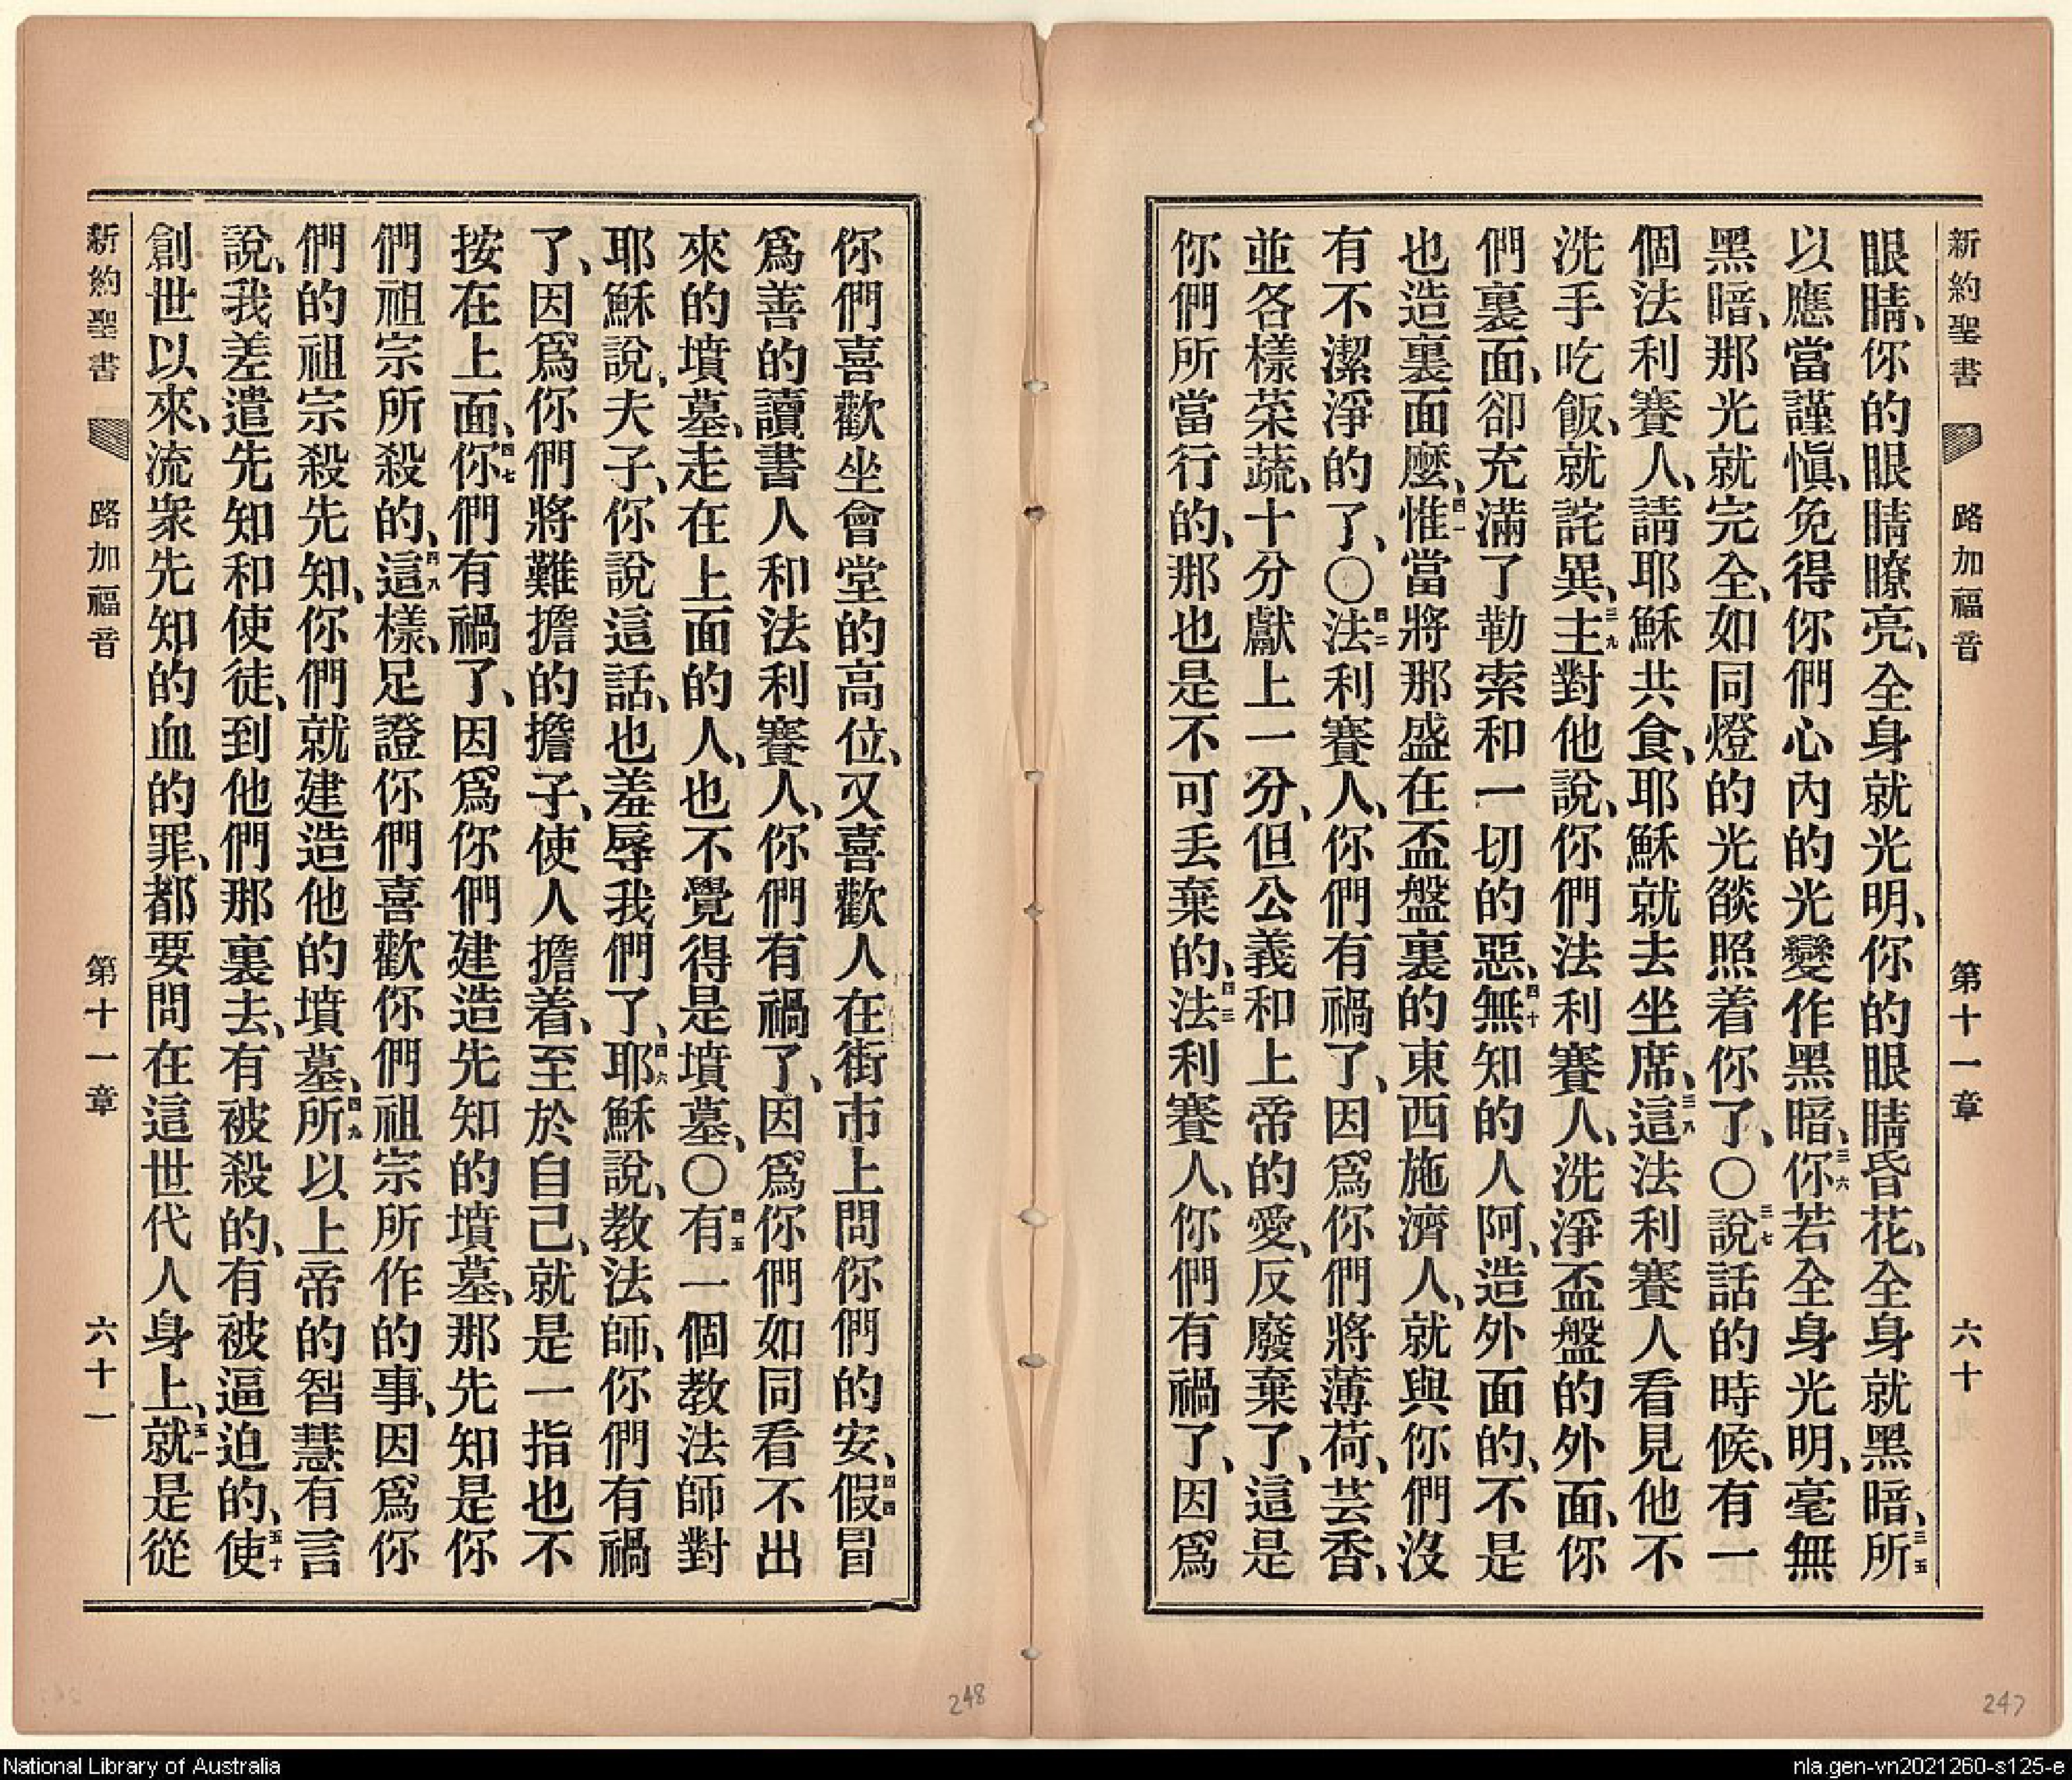 新約聖書 路加福音 第十一章 六十
眼睛、你的眼睛瞭亮、全身就光明、你的眼睛昏花、全身就黑暗、三五所
以應當謹愼、免得你們心內的光變作黑暗、三六你若全身光明、毫無
黑暗、那光就完全、如同燈的光燄照着你了、〇三七說話的時候、有一
個法利賽人、請耶穌共食、耶穌就去坐席、三八這法利賽人看見他不
洗手吃飯、就詫異、三九主對他說、你們法利賽人、洗淨盃盤的外面、你
們裏面、卻充滿了勒索和一切的惡、四十無知的人阿、造外面的、不是
也造裏面麼、四一惟當將那盛在盃盤裏的東西施濟人、就與你們沒
有不潔淨的了、〇四二法利賽人、你們有禍了、因爲你們將薄荷、芸香、
並各樣菜蔬、十分獻上一分、但公義和上帝的愛、反廢棄了、這是
你們所當行的、那也是不可丟棄的、四三法利賽人、你們有禍了、因爲
你們喜歡坐會堂的高位、又喜歡人在街市上問你們的安、四四假冒
爲善的讀書人和法利賽人、你們有禍了、因爲你們如同看不出
來的墳墓、走在上面的人、也不覺得是墳墓、〇四五有一個教法師對
耶穌說、夫子、你說這話、也羞辱我們了、四六耶穌說、教法師、你們有禍
了、因爲你們將難擔的擔子、使人擔着、至於自己、就是一指也不
按在上面、四七你們有禍了、因爲你們建造先知的墳墓、那先知是你
們祖宗所殺的、四八這樣、足證你們喜歡你們祖宗所作的事、因爲你
們的祖宗殺先知、你們就建造他的墳墓、四九所以上帝的智慧有言
說、我差遣先知和使徒、到他們那裏去、有被殺的、有被逼迫的、五十使
創世以來、流衆先知的血的罪、都要問在這世代人身上、五一就是從
新約聖書 路加福音 第十一章 六十一
248
247
National Library of Australia
nla.gen-vn2021260-s125-e